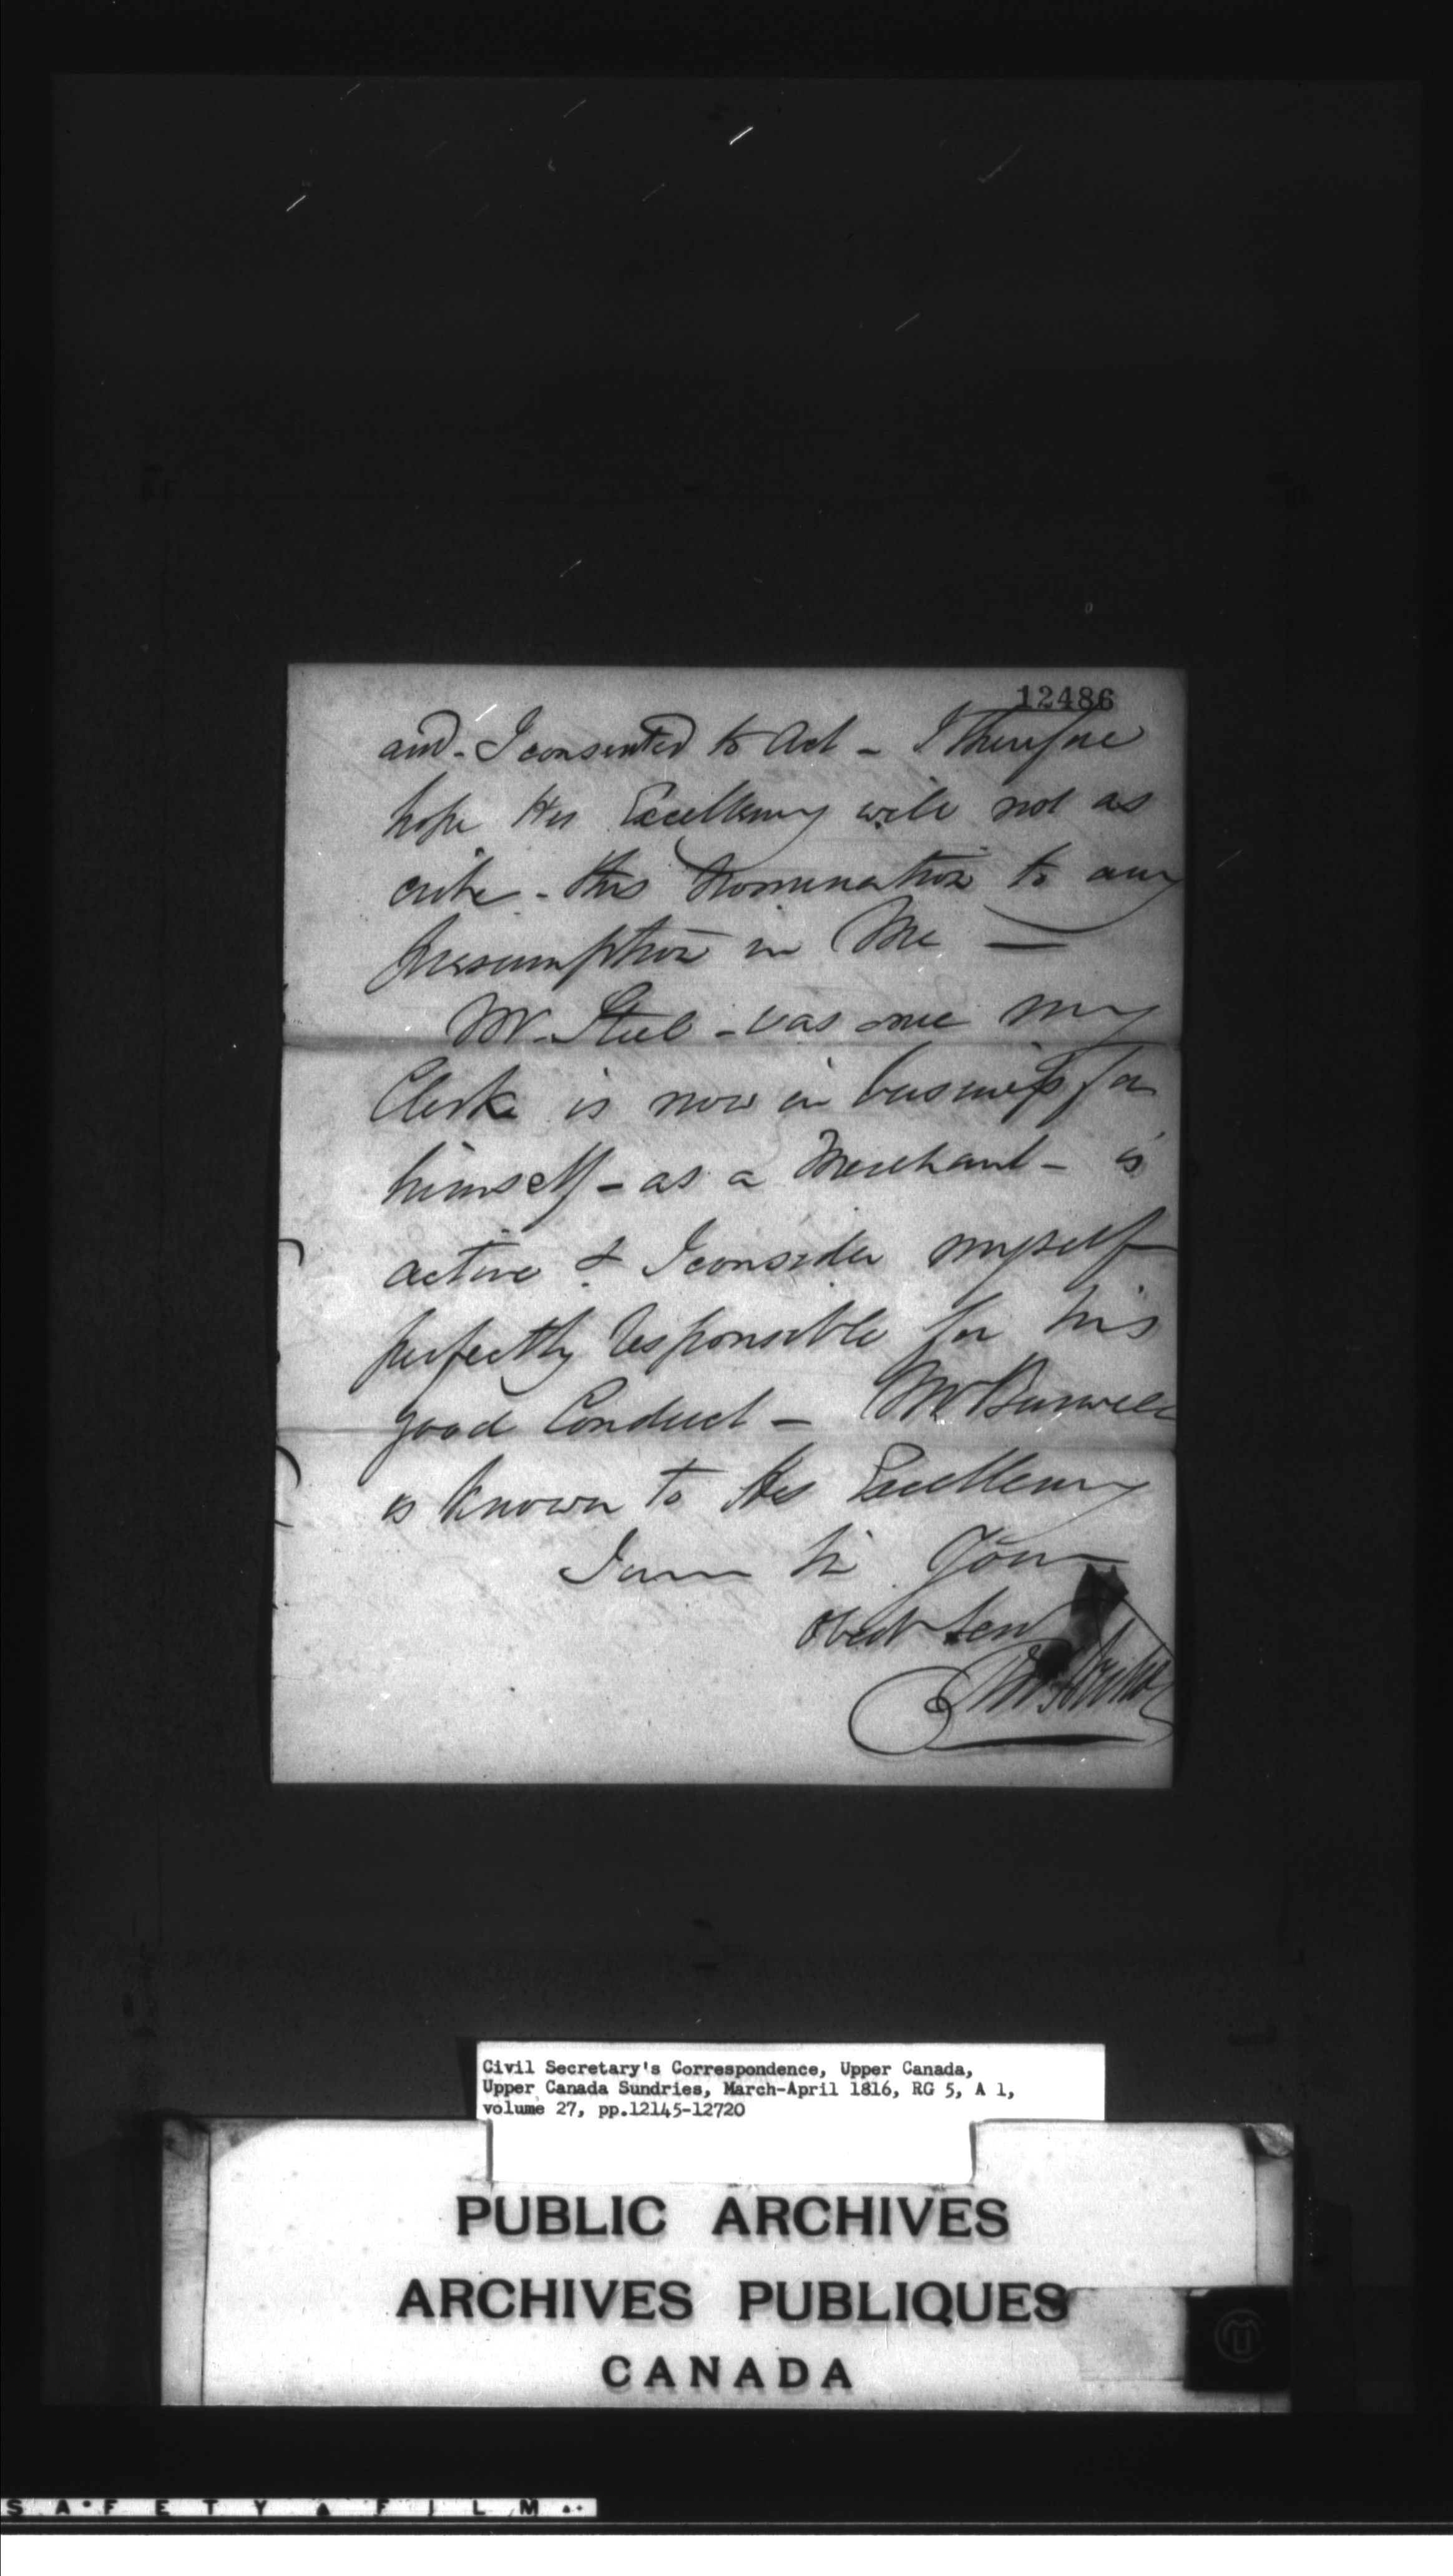 12486
and - I consented to Act - I Therefore
hope His Excellency will not as
cribe - this Nomination to any
presumption in Me —
Mr. Steel - was once my
Clerk is now in business for
himself - as a Merchant - is
active & I consider myself
perfectly responsible for his
good Conduct - Mr Burwell
is known to His Excellency
I am Sir Your
Obedt Servt
Civil Secretary's Correspondence, Upper Canada,
Upper Canada Sundries, March-April 1816, RG 5, A 1,
volume 27, pp.12145-12720
PUBLIC ARCHIVES
ARCHIVES PUBLIQUES
CANADA
SAFETY FILM